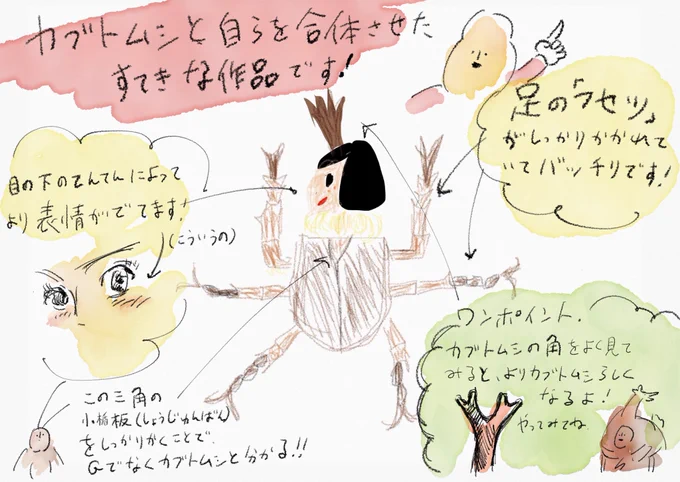 カブトムシと自らを合体させた
すてきな作品です!
足の「フセツ」
がしっかりかかれて
いてバッチリです!
目の下のてんてんによって
より表情がでてます!
(こういうの)
ワンポイント.
カブトムシの角をよく見て
みると、よりカブトムシらしく
なるよ!
やってみてね
この三角の
小楯板(しょうじゅんばん)
をしっかりかくことで、
Gでなくカブトムシと分かる!!